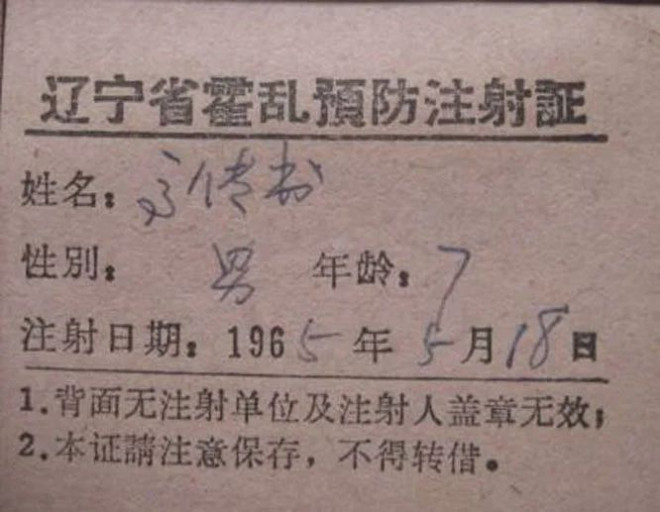 辽宁省霍乱預防注射証
姓名：高传书
性別：男 年龄：7
注射日期：1965年5月18日
1.背面无注射单位及注射人盖章无效；
2.本证請注意保存，不得转借。